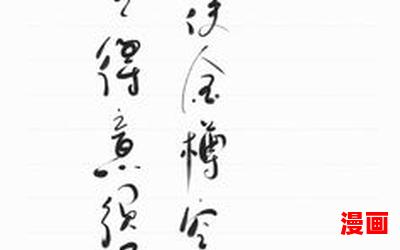 得意须
使金樽空
漫画